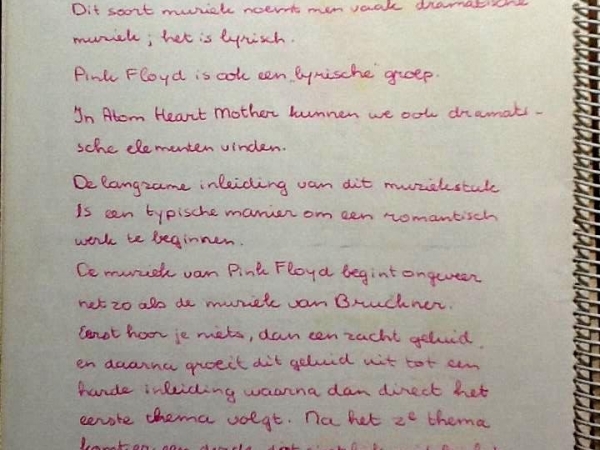 Dit soort muziek noemt men vaak dramatische
muziek; het is lyrisch.
Pink Floyd is ook een "lyrische" groep.
In Atom Heart Mother kunnen we ook dramati-
sche elementen vinden.
De langzame inleiding van dit muziekstuk
Is een typische manier om een romantisch
werk te beginnen.
De muziek van Pink Floyd begint ongeveer
net zo als de muziek van Bruckner.
Eerst hoor je niets, dan een zacht geluid
en daarna groeit dit geluid uit tot een
harde inleiding waarna dan direct het
eerste thema volgt. Na het 2e thema
komt er een derde